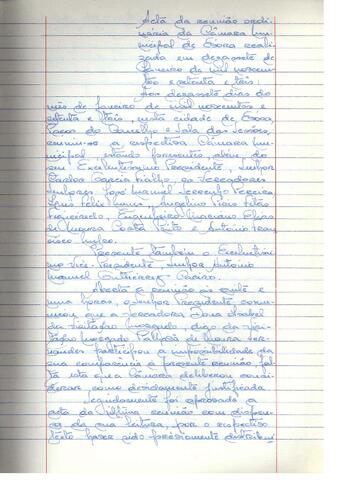 Acta da reunião ordi-
nária da Câmara Mu-
nicipal de Évora reali-
zada em dezassete de
Janeiro de mil novecen-
tos e setenta e três.
Aos dezassete dias do
mês de Janeiro de mil novecentos e
setenta e três, nesta cidade de Évora,
Paços do Concelho e Sala das Sessões,
reuniu-se a respectiva Câmara Mu-
nicipal, estando presentes, além do
seu Excelentíssimo Presidente, Senhor
os Vereadores
Senhores José Manuel Pereira
Angelino
Figueiredo, Engenheiro Mariano Elias
de Moura Costa Pinto e António Fran-
cisco
Presente também o Excelentíssi-
mo Vice-Presidente, Senhor António
Manuel
Aberta a reunião às vinte e
uma horas, o Senhor Presidente, comu-
nicou que a Vereadora Dona Isabel
da Visitação digo da Visi-
tação de Moura Fer-
nandes participou a impossibilidade da
sua comparência à presente reunião, fal-
ta esta que a Câmara deliberou consi-
derar como devidamente justificada.
Seguidamente foi aprovada a
acta da última reunião com dispen-
sa da sua leitura, por o respectivo
texto haver sido previamente distribuí